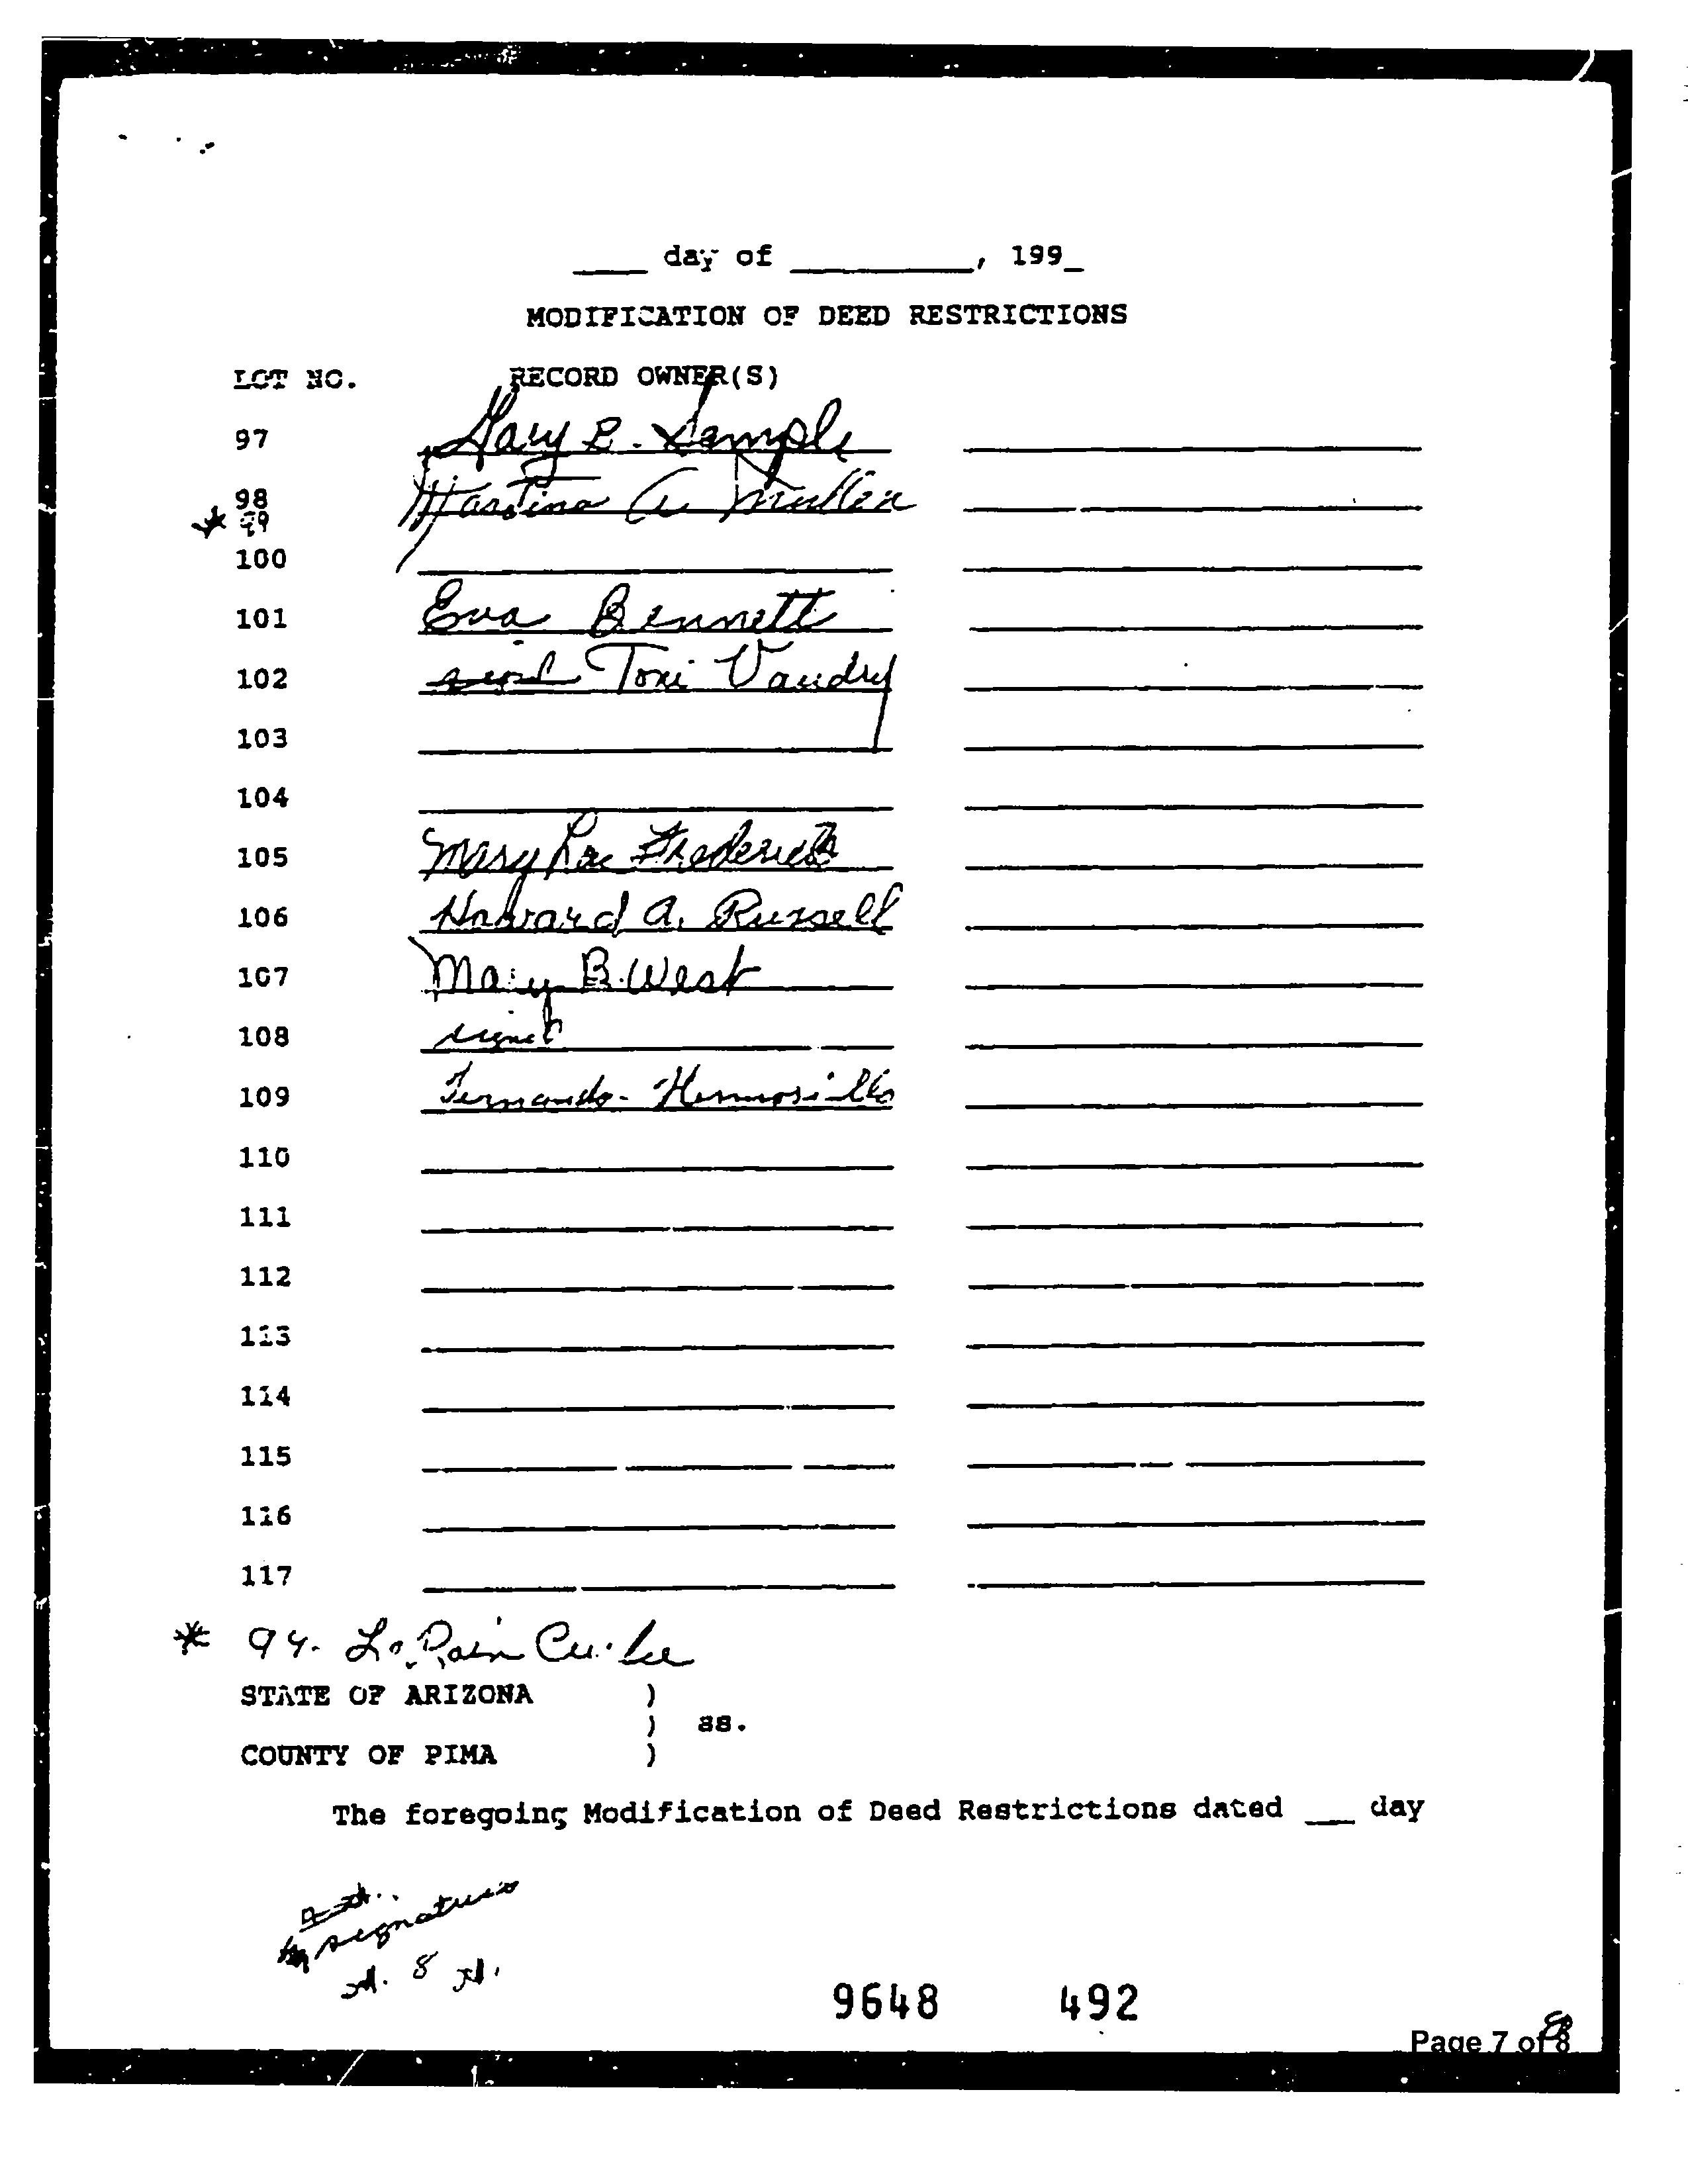 ____ day of __________, 199_
MODIFICATION OF DEED RESTRICTIONS
LOT NO. RECORD OWNER(S)
97 Gary E. Sample
98 Martina A Mullen
* 99
100
101 Eva Bennett
102 Toni Vaudry
103
104
105 Mary Lou Frederick
106 Howard A. Russell
107 Mary B. West
108 signed
109 Fernando Hermosillo
110
111
112
113
114
115
116
117
* 99. LoRain
STATE OF ARIZONA )
) ss.
COUNTY OF PIMA )
The foregoing Modification of Deed Restrictions dated ___ day
signatures
8
9648 492
Page 7 of 8